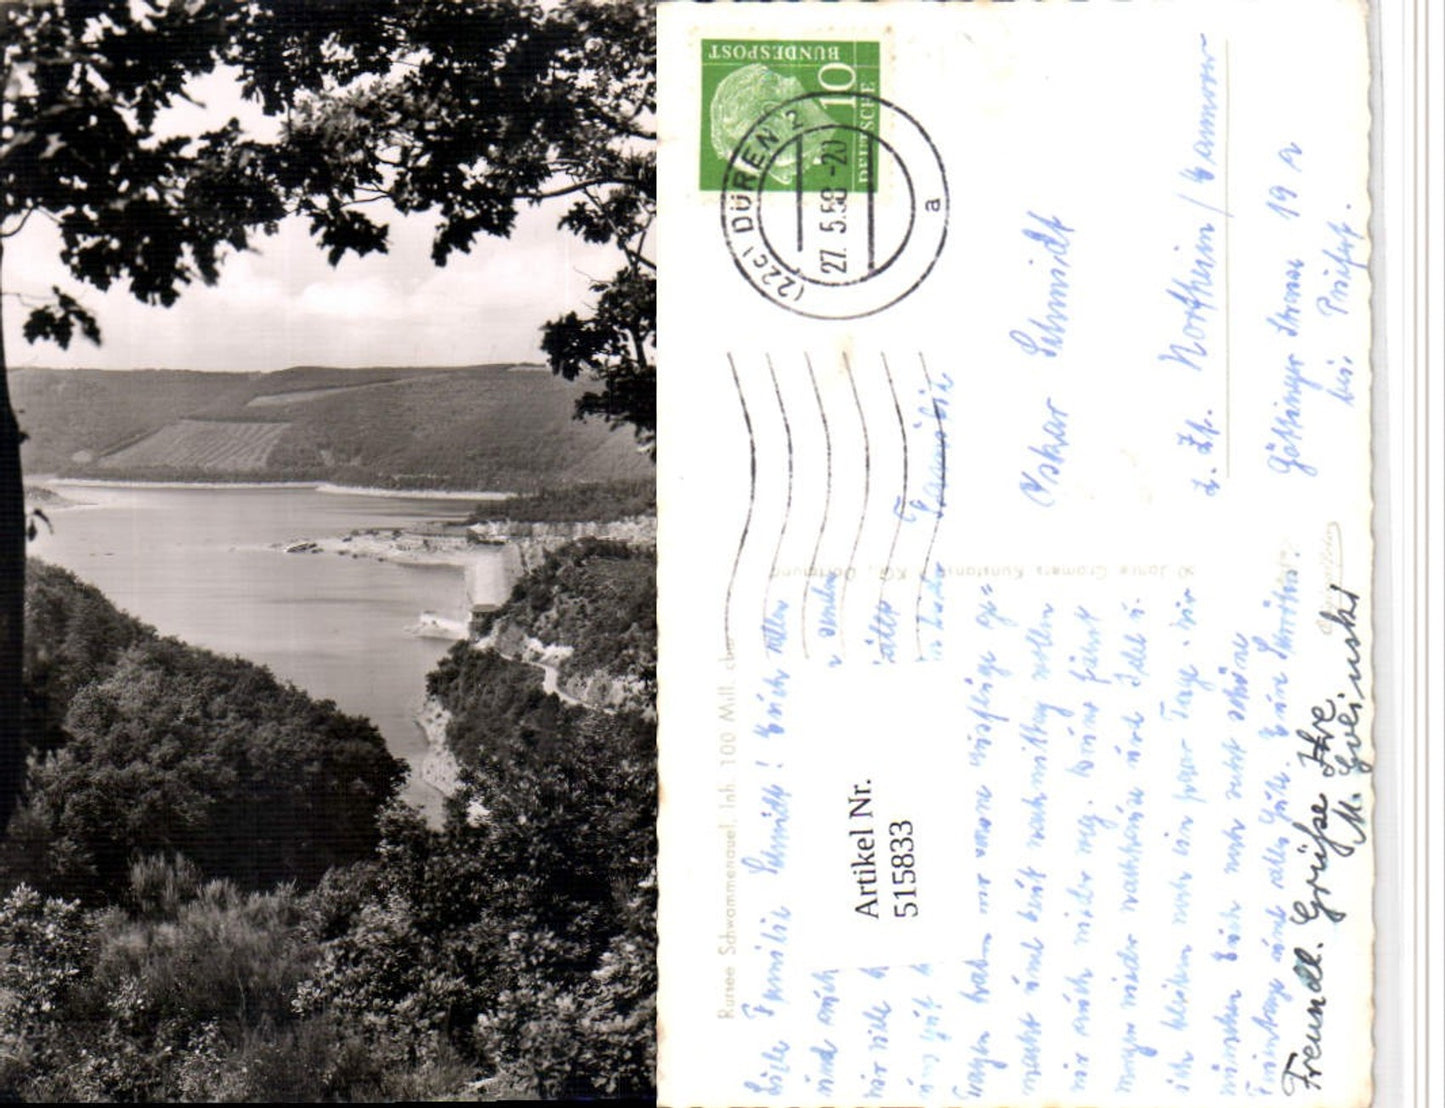 Rursee Schwammenauel, Inh. 100 Mill. cbm
Liebe Familie Schmidt! Euch allen
und auch
wir alle
uns gut
Tagen haben wir Ausflüge ge=
macht und heut nachmittag wollen
wir auch wieder weg. Heinz fährt
morgen wieder nachhause und Idel u.
ich bleiben noch ein paar Tage. Wir
wünschen Euch noch recht schöne
Feiertage und alles Gute. Eure
Freundl. Grüße Ihre
M. Golinski
Artikel Nr.
515833
DEUTSCHE
BUNDESPOST
10
(22c) DÜREN 2
27.5.58-20
a
Familie
Oskar Schmidt
z. Zt. Northeim / Hannover
Göttinger Strasse 19 A
bei